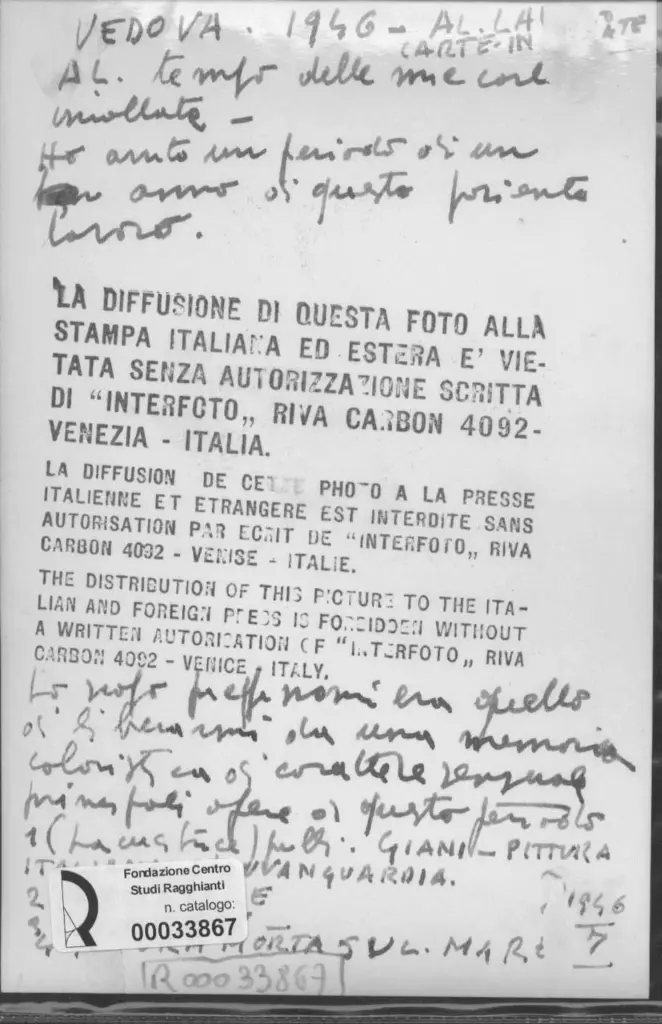 VEDOVA. 1946 - AL. LA'
CARTE-IN
AL. tempo delle mie cose
incollate -
Ho avuto un periodo di un
anno di questo
lavoro.
LA DIFFUSIONE DI QUESTA FOTO ALLA
STAMPA ITALIANA ED ESTERA E' VIE-
TATA SENZA AUTORIZZAZIONE SCRITTA
DI "INTERFOTO„ RIVA CARBON 4092-
VENEZIA - ITALIA.
LA DIFFUSION DE CETTE PHOTO A LA PRESSE
ITALIENNE ET ETRANGERE EST INTERDITE SANS
AUTORISATION PAR ECRIT DE "INTERFOTO„ RIVA
CARBON 4092 - VENISE - ITALIE.
THE DISTRIBUTION OF THIS PICTURE TO THE ITA-
LIAN AND FOREIGN PRESS IS FORBIDDEN WITHOUT
A WRITTEN AUTORISATION OF "INTERFOTO„ RIVA
CARBON 4092 - VENICE - ITALY.
Lo scopo era quello
di liberarmi da una memoria
coloristica di carattere sensuale
principali opere di questo periodo
1 (La cucitrice) pubb. GIANI - PITTURA
AVANGUARDIA.
2 E
MORTA SUL. MARE
1946
7
Fondazione Centro
Studi Ragghianti
n. catalogo:
00033867
R00033867